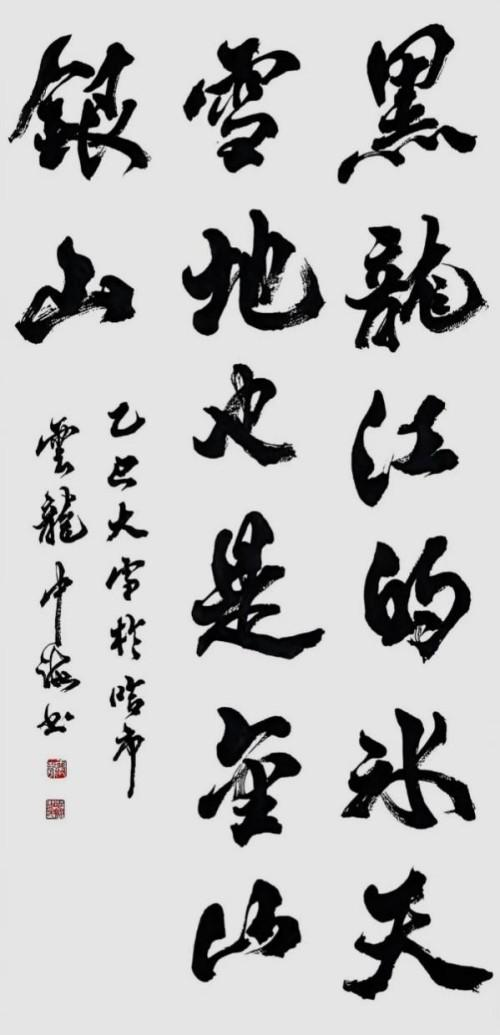 黑龍江的冰天
雪地也是金山
銀山
乙巳大雪於哈市
雲龍中海書